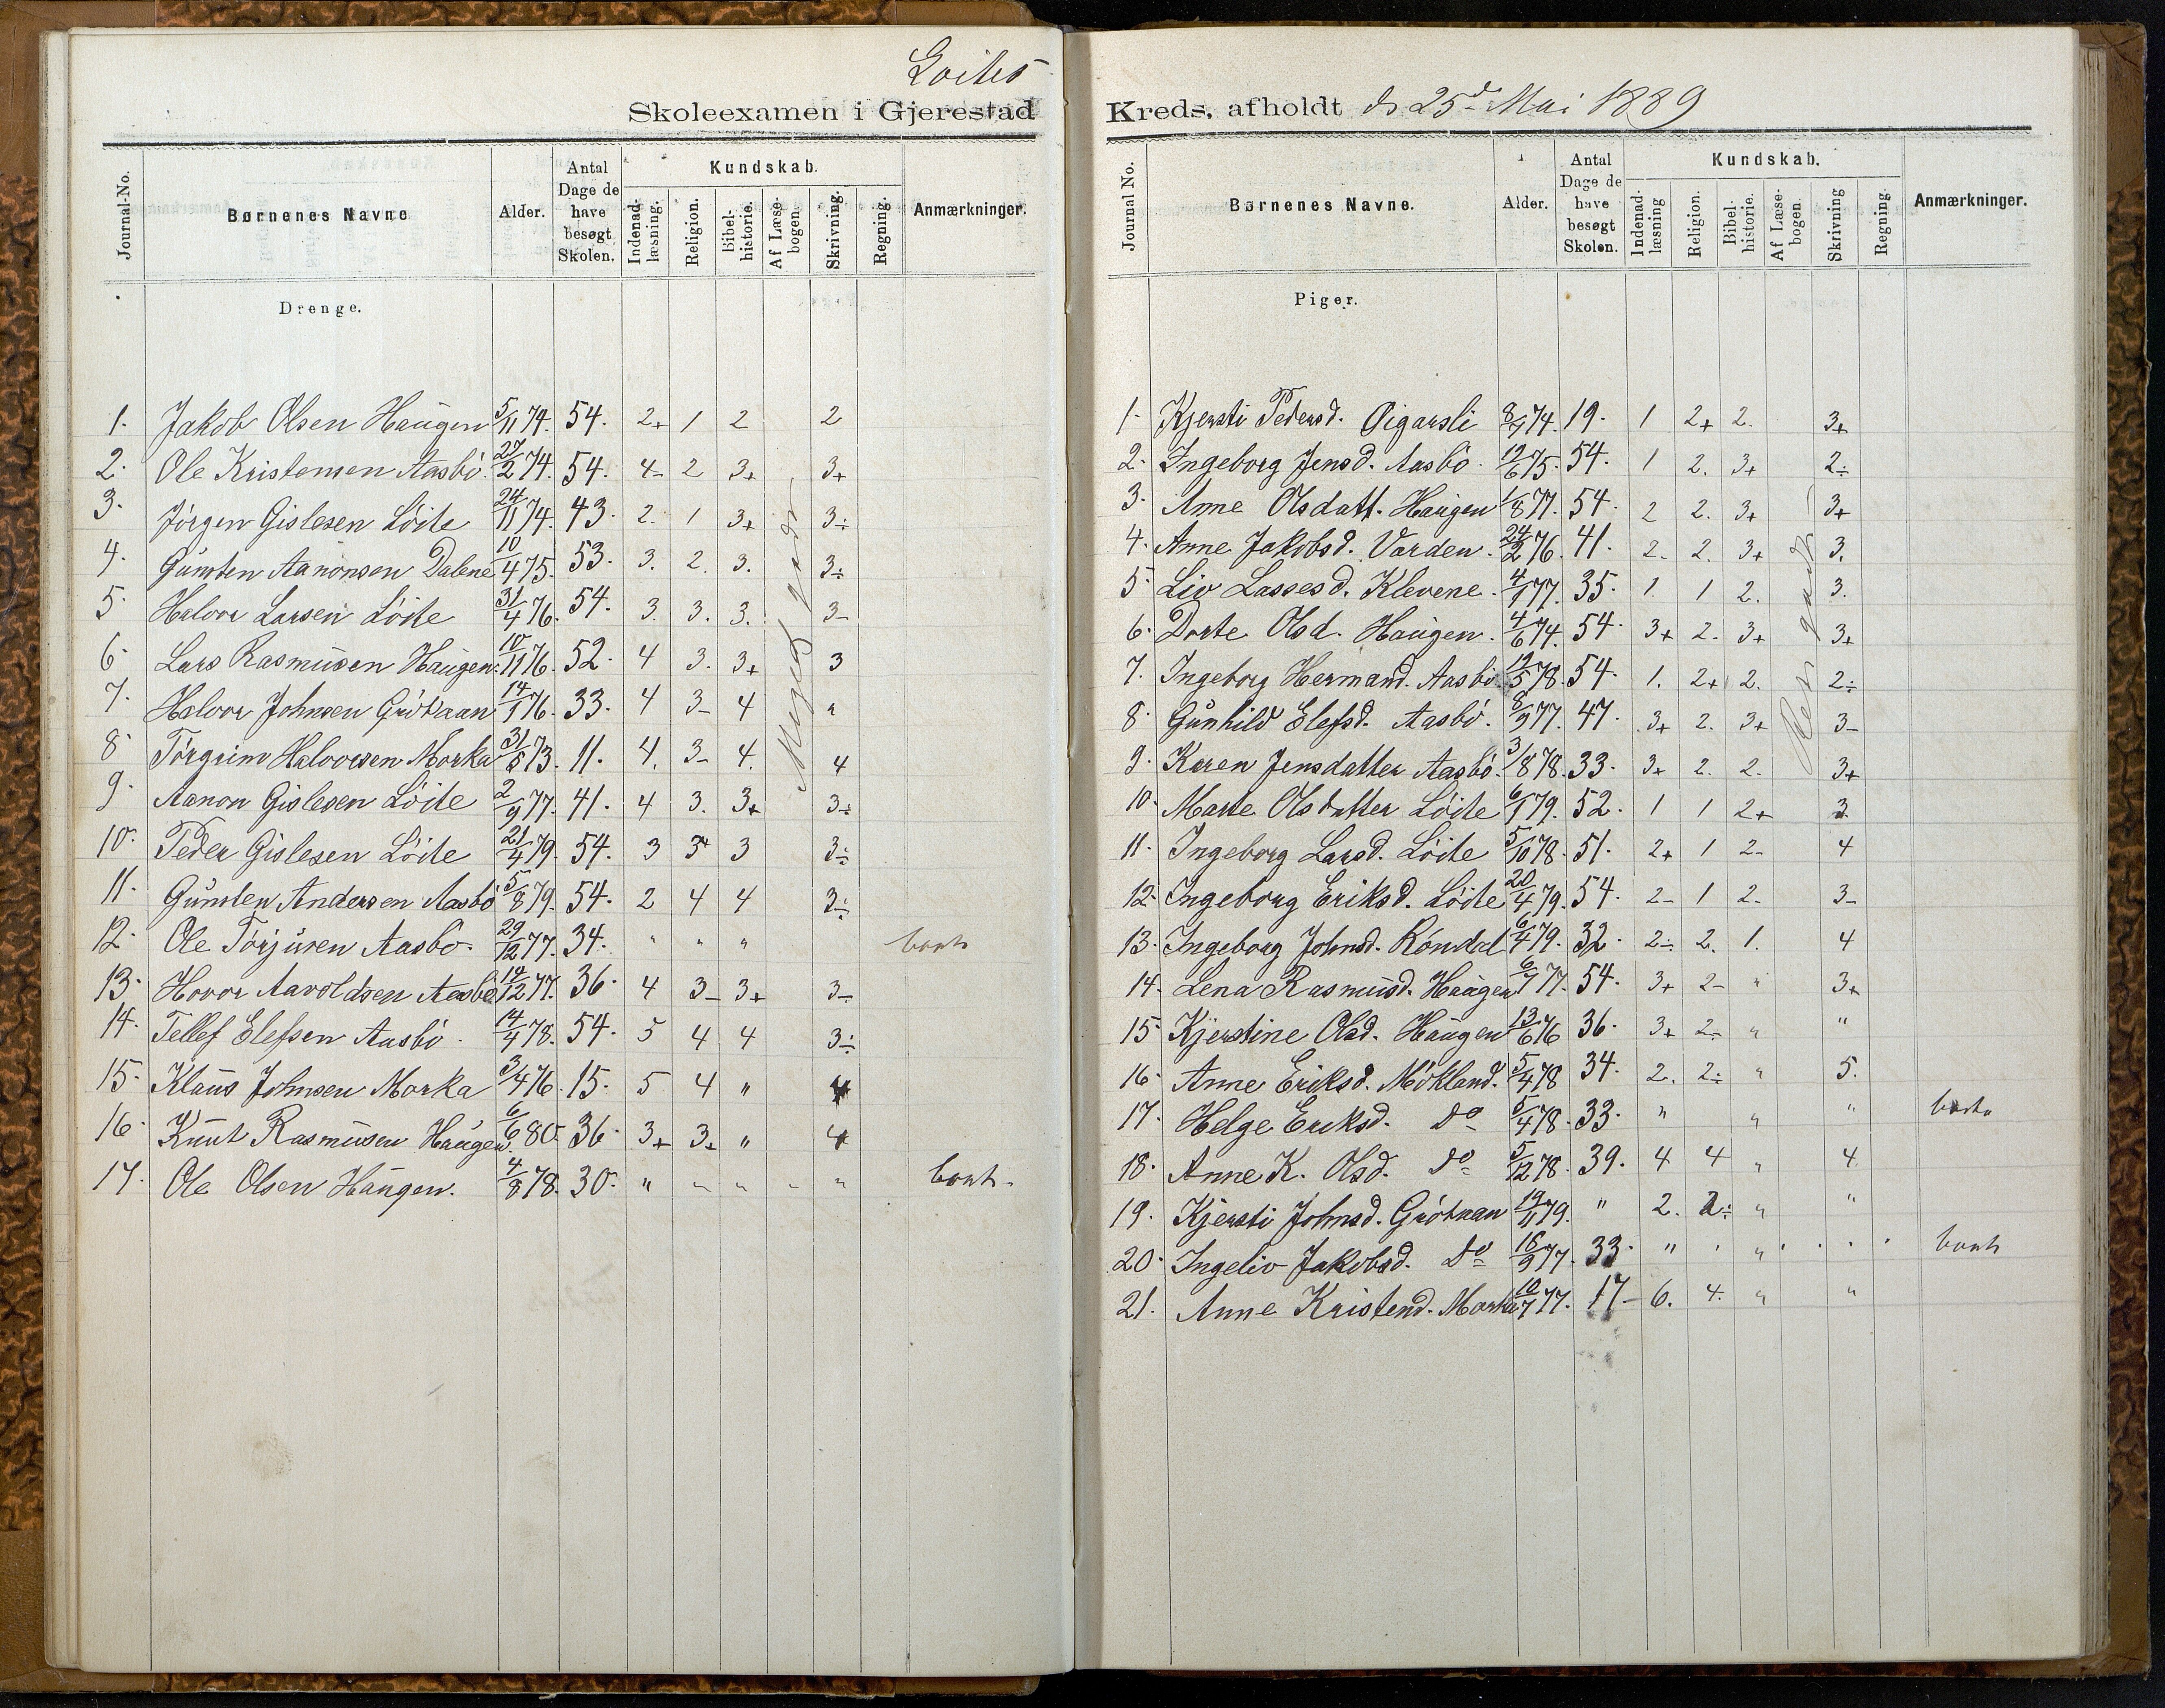 Loites
Skoleexamen i Gjerestad Kreds, afholdt d. 25d Mai 1889
Journal-No. Børnenes Navne Alder. Antal Dage de have besøgt Skolen. Kundskab. Indenad-læsning. Religion. Bibel-historie. Af Læse-bogen. Skrivning. Regning. Anmærkninger.
Drenge.
1. Jakob Olsen Haugen 5/11 74. 54. 2+ 1 2 2
2. Ole Kristensen Aasbö. 27/2 74. 54. 4- 2 3+ 3+
3. Jörgen Gislesen Löite 24/11 74. 43. 2. 1 3+ 3÷
4. Gunsten Aanonsen Dalene 10/4 75. 53. 3. 2. 3. 3÷
5. Halvor Larsen Löite 31/4 76. 54. 3. 3. 3. 3-
6. Lars Rasmusen Haugen. 10/11 76. 52. 4 3. 3+ 3
7. Halvor Johnsen Grötraan 14/1 76. 33. 4 3- 4 "
8. Törgrim Halvorsen Morka 31/8 73. 11. 4. 3- 4. 4
9. Aanon Gislesen Löite 2/9 77. 41. 4 3. 3+ 3÷
10. Peder Gislesen Löite 21/4 79. 54. 3 3+ 3 3÷
11. Gunsten Andersen Aasbö 5/8 79. 54. 2 4 4 3÷
12. Ole Törjusen Aasbö. 29/12 77. 34. " " " borte
13. Hovor Aavoldsen Aasbö 14/12 77. 36. 4 3- 3+ 3-
14. Tellef Elefsen Aasbö. 14/4 78. 54. 5 4 4 3÷
15. Klaus Johnsen Morka 3/4 76. 15. 5 4 " 4
16. Knut Rasmusen Haugen. 6/6 80. 36. 3+ 3+ " 4
17. Ole Olsen Haugen. 4/8 78. 30. " " " " " borte.
Meget godt
Journal No. Børnenes Navne. Alder. Antal Dage de have besøgt Skolen. Kundskab. Indenad-læsning Religion. Bibel-historie. Af Læse-bogen. Skrivning Regning. Anmærkninger.
Piger.
1. Kjersti Pedersd. Oigarsli 8/7 74. 19. 1 2+ 2. 3+
2. Ingeborg Jensd. Aasbö. 19/6 75. 54. 1 2. 3+ 2÷
3. Anne Olsdatt. Haugen 1/8 77. 54. 2 2. 3+ 3+
4. Anne Jakobsd. Varden. 24/2 76. 41. 2. 2. 3+ 3.
5. Liv Lassesd. Klevene. 4/1 77. 35. 1. 1 2. 3.
6. Dorte Olsd. Haugen. 4/6 74. 54. 3+ 2. 3+ 3+
7. Ingeborg Hermand. Aasbö 19/5 78. 54. 1. 2+ 2. 2÷
8. Gunhild Elefsd. Aasbö. 8/9 77. 47. 3+ 2. 3+ 3-
9. Karen Jensdatter Aasbö. 3/8 78. 33. 3+ 2. 2. 3+
10. Marte Olsdatter Löite 6/1 79. 52. 1 1 2+ 3.
11. Ingeborg Larsd. Löite 5/10 78. 51. 2+ 1 2- 4
12. Ingeborg Eriksd. Löite 20/4 79. 54. 2- 1 2. 3-
13. Ingeborg Johnsd. Röndal 6/4 79. 32. 2÷ 2. 1. 4
14. Lena Rasmusd. Haugen 6/7 77. 54. 3+ 2- " 3+
15. Kjerstine Olsd. Haugen 13/6 76 36. 3+ 2- " "
16. Anne Eriksd. Mökland. 5/4 78 34. 2. 2÷ " 5.
17. Helge Eriksd. Do 5/4 78. 33. " " " borte
18. Anne K. Olsd. Do 5/12 78. 39. 4 4 " 4
19. Kjersti Johnsd. Grötraan 19/11 79. " 2. 2÷ " "
20. Ingeliv Jakobsd. Do 16/9 77. 33. " " " borte
21. Anne Kristend. Morka 10/7 77. 17- 6. 4. " "
godt